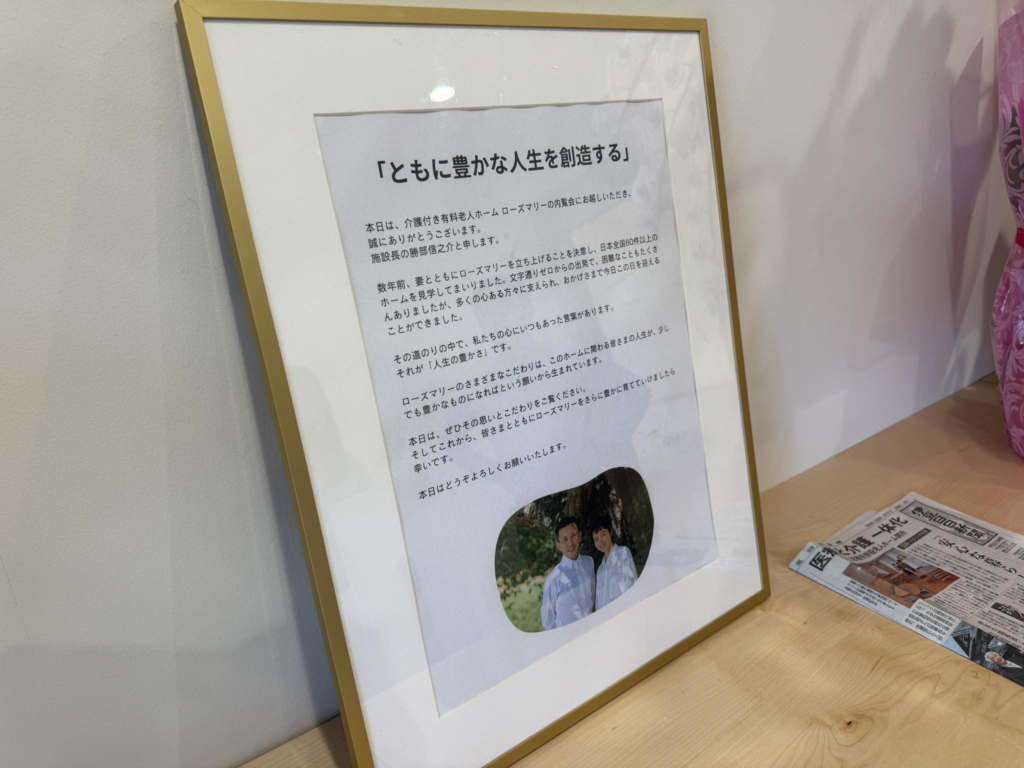 「ともに豊かな人生を創造する」
本日は、介護付き有料老人ホーム ローズマリーの内覧会にお越しいただき、
誠にありがとうございます。
施設長の勝部信之介と申します。
数年前、妻とともにローズマリーを立ち上げることを決意し、日本全国60件以上の
ホームを見学してまいりました。文字通りゼロからの出発で、困難なこともたくさ
んありましたが、多くの心ある方々に支えられ、おかげさまで今日この日を迎える
ことができました。
その道のりの中で、私たちの心にいつもあった言葉があります。
それが「人生の豊かさ」です。
ローズマリーのさまざまなこだわりは、このホームに関わる皆さまの人生が、少し
でも豊かなものになればという願いから生まれています。
本日は、ぜひその思いとこだわりをご覧ください。
そしてこれから、皆さまとともにローズマリーをさらに豊かに育てていけましたら
幸いです。
本日はどうぞよろしくお願いいたします。
医療 介護 一体化